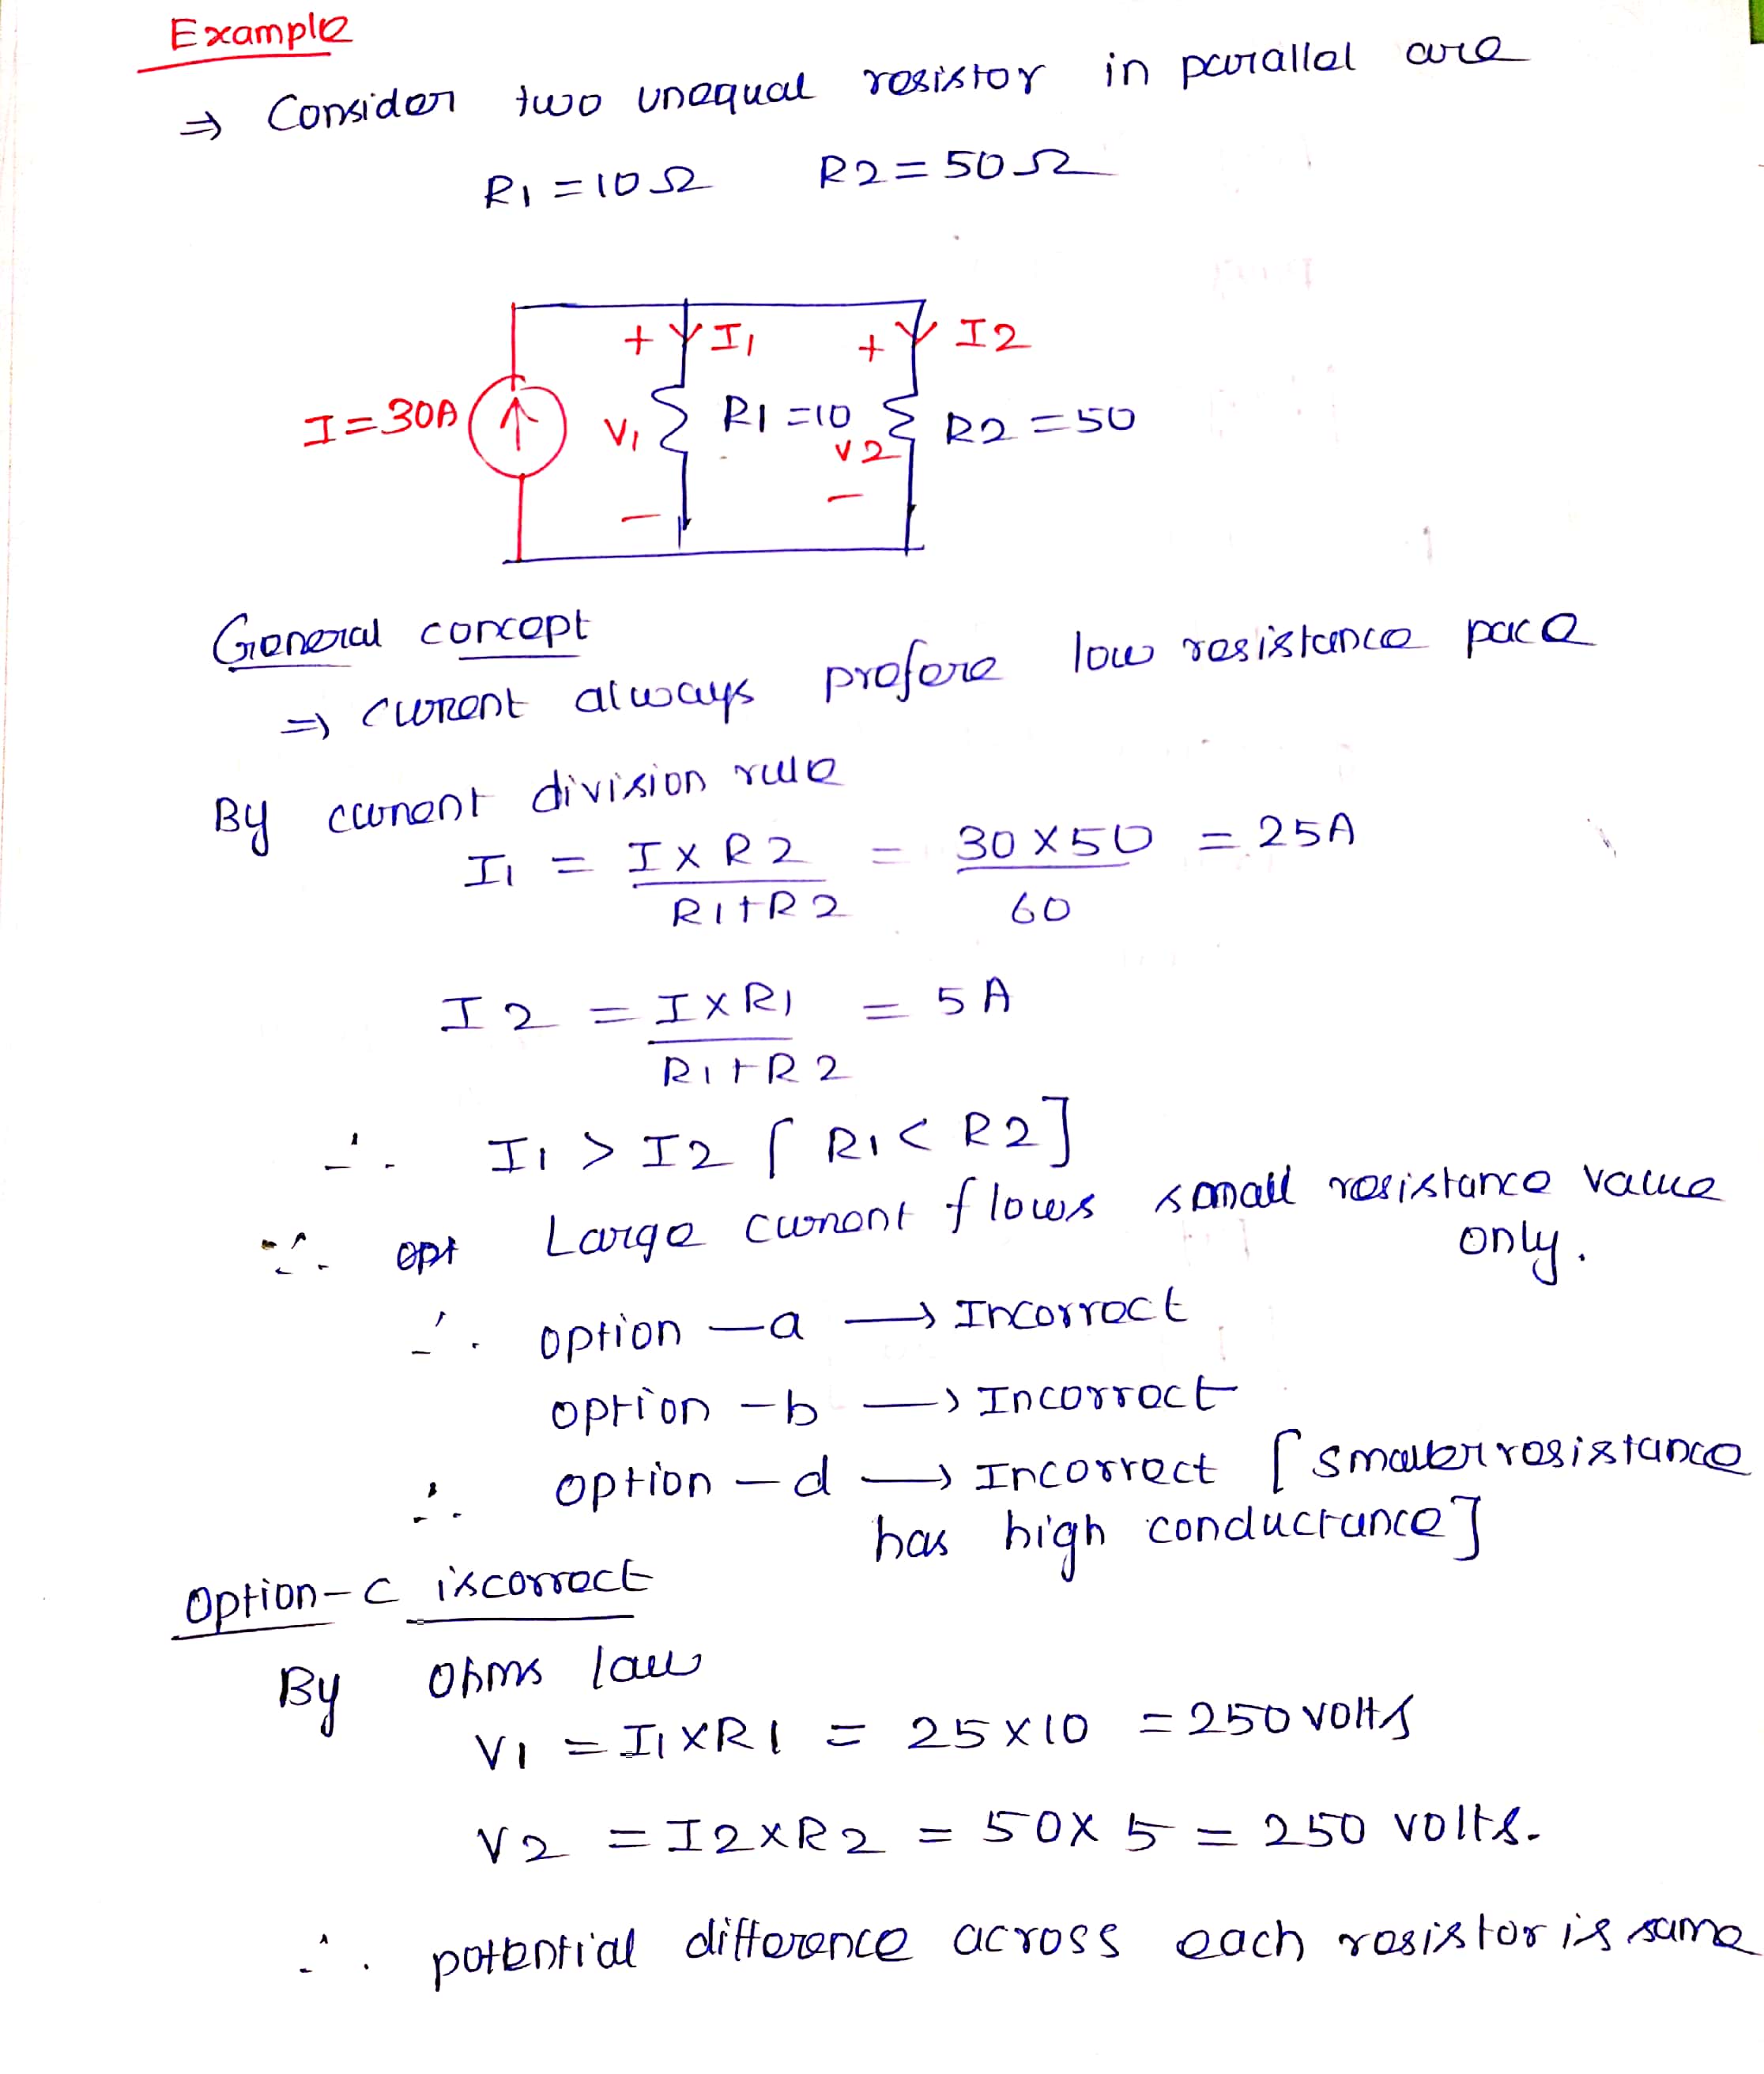 Example
⇒ Consider two unequal resistor in parallel are
R1 = 10Ω R2 = 50Ω
+ I1 + I2
I = 30A V1 R1 = 10 V2 R2 = 50
- -
General concept
⇒ current always prefere low resistance pace
By current division rule
I1 = I X R2 = 30 X 50 = 25A
R1+R2 60
I2 = I X R1 = 5A
R1+R2
∴ I1 > I2 [R1 < R2]
∴ opt Large current flows small resistance value
only.
∴ option - a → Incorrect
option - b → Incorrect
∴ option - d → Incorrect [smaller resistance
has high conductance]
Option - c is correct
By Ohms law
V1 = I1 X R1 = 25 X 10 = 250 volts
V2 = I2 X R2 = 50 X 5 = 250 volts.
∴ potential difference across each resistor is same